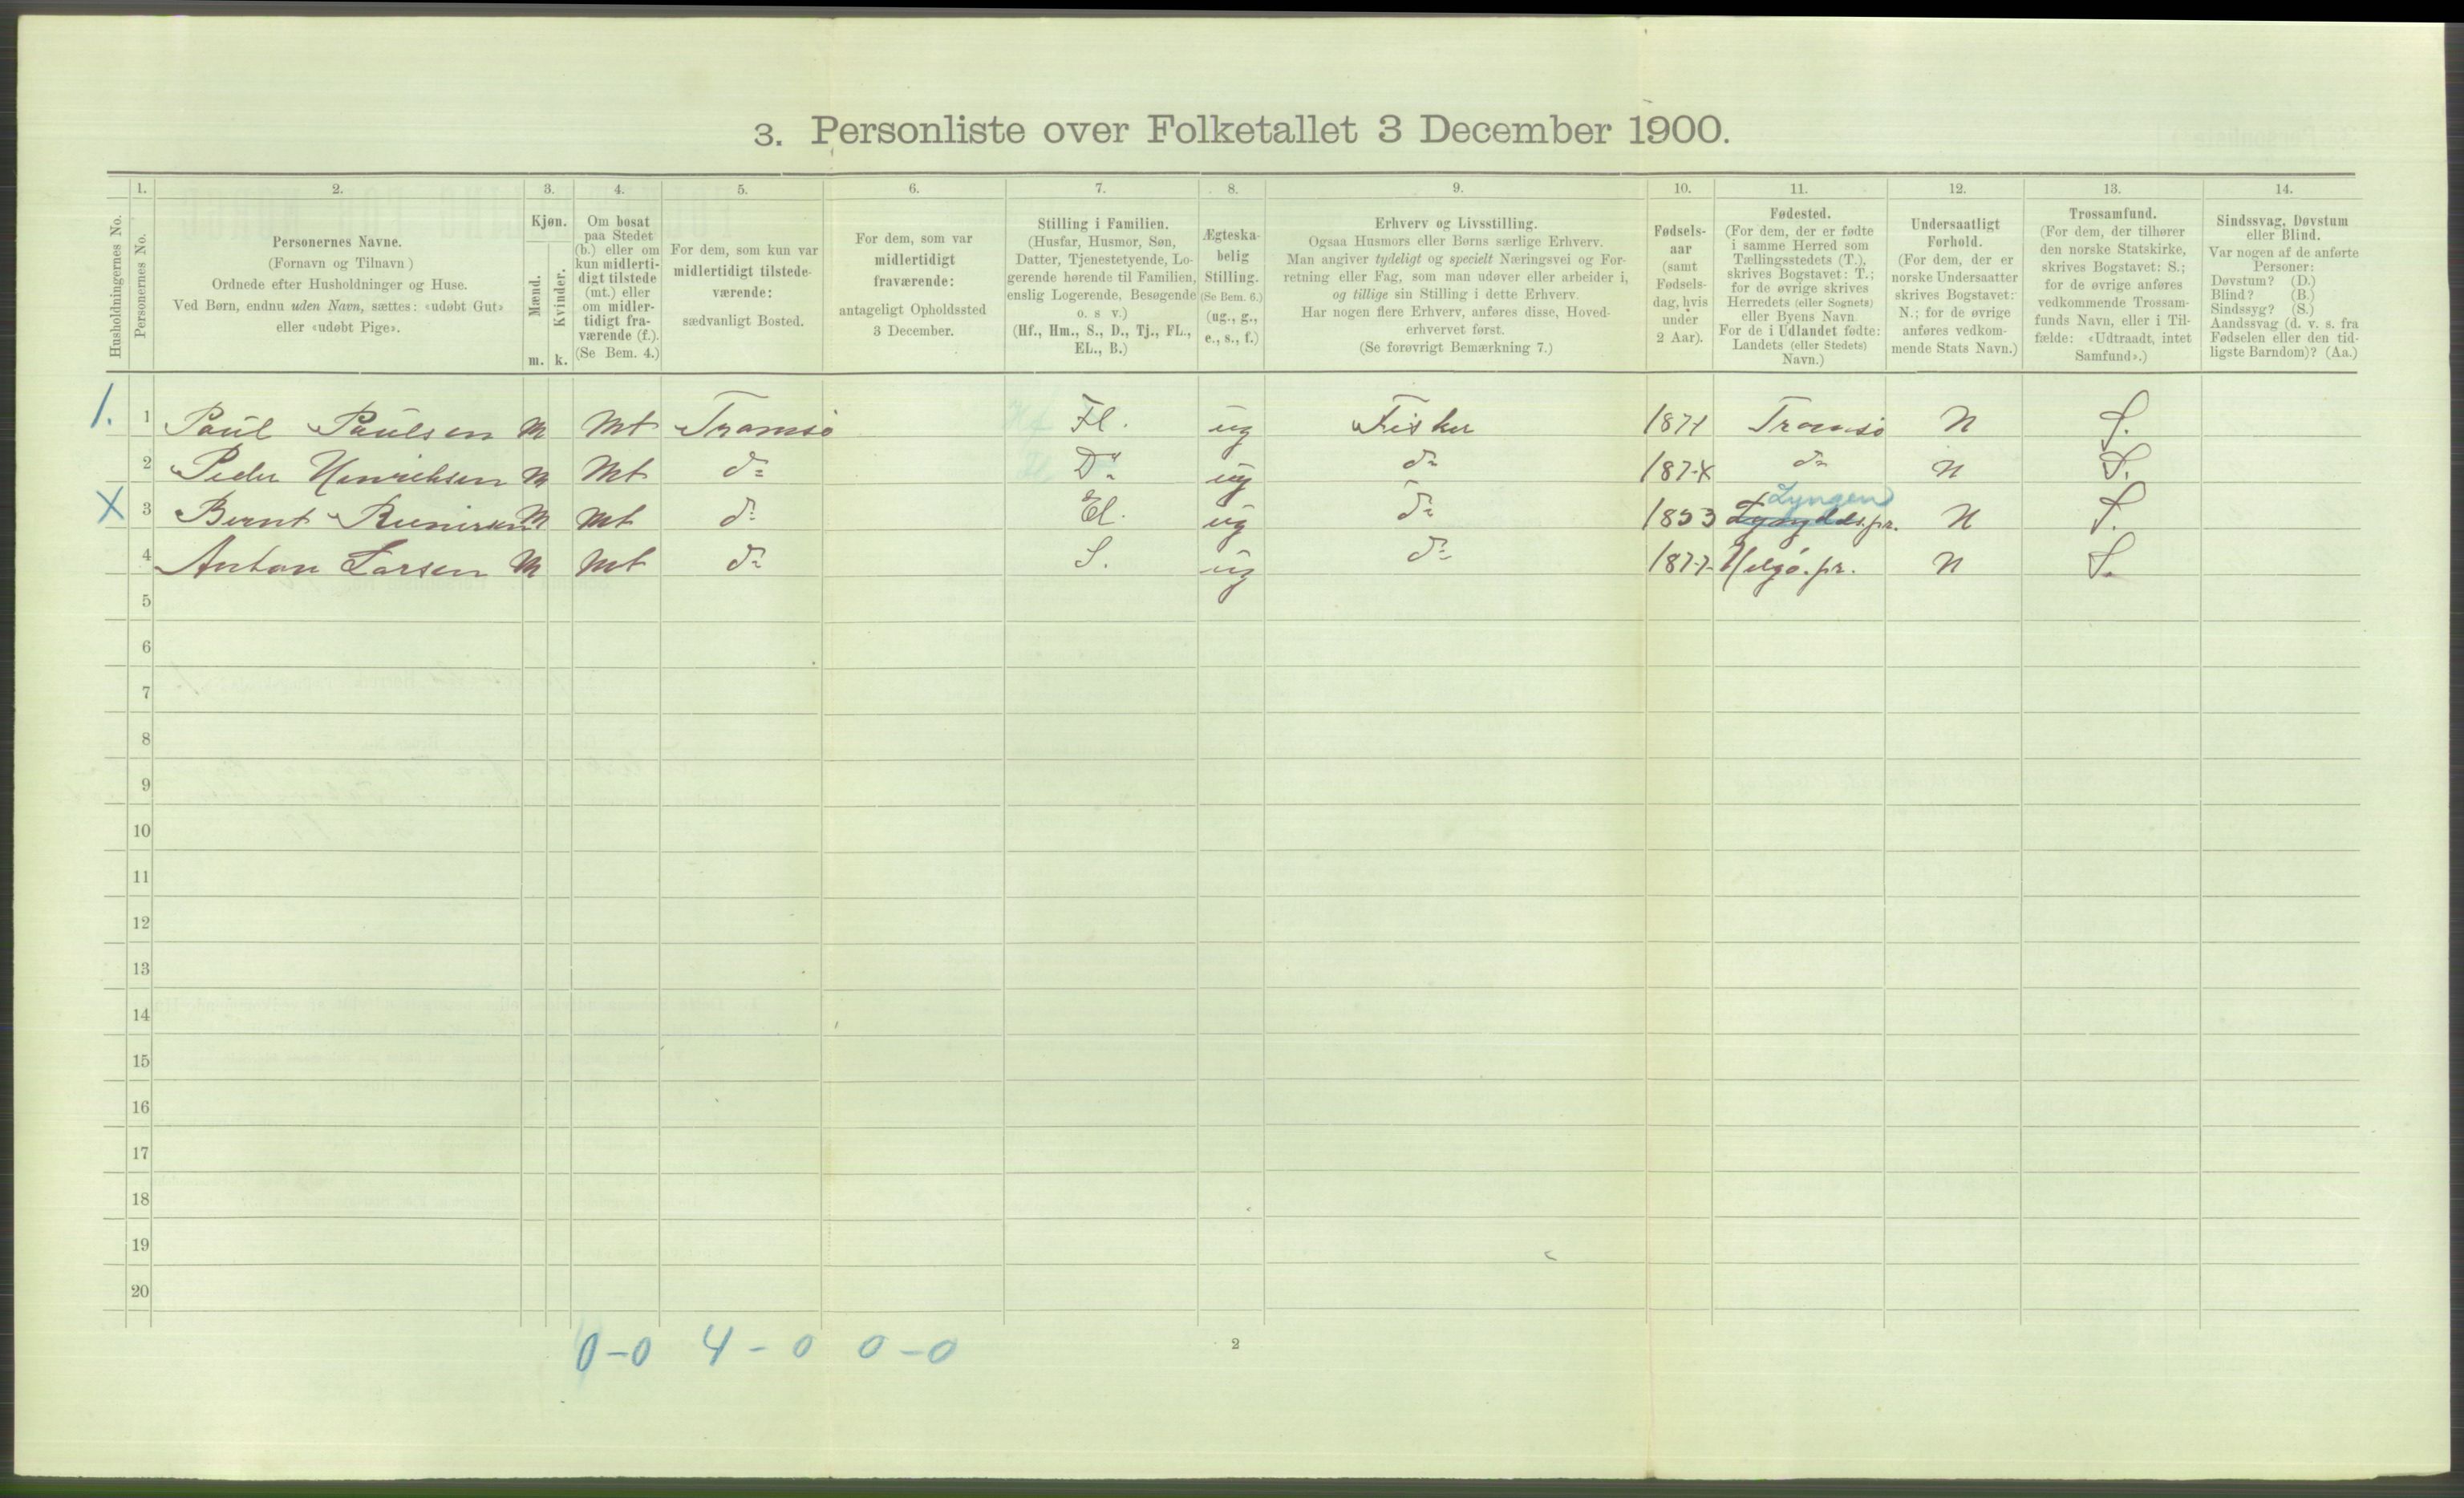 3. Personliste over Folketallet 3 December 1900.
1. 2. 3. 4. 5. 6. 7. 8. 9. 10. 11. 12. 13. 14.
Husholdningernes No.
Personernes No.
Personernes Navne.
(Fornavn og Tilnavn)
Ordnede efter Husholdninger og Huse.
Ved Børn, endnu uden Navn, sættes: «udøbt Gut»
eller «udøbt Pige».
Kjøn.
Mænd.
Kvinder.
m. k.
Om bosat
paa Stedet
(b.) eller om
kun midlerti-
digt tilstede
(mt.) eller
om midler-
tidigt fra-
værende (f.).
(Se Bem. 4.)
For dem, som kun var
midlertidigt tilstede-
værende:
sædvanligt Bosted.
For dem, som var
midlertidigt
fraværende:
antageligt Opholdssted
3 December.
Stilling i Familien.
(Husfar, Husmor, Søn,
Datter, Tjenestetyende, Lo-
gerende hørende til Familien,
enslig Logerende, Besøgende
o. s v.)
(Hf., Hm., S., D., Tj., FL.,
EL., B.)
Ægteska-
belig
Stilling.
(Se Bem. 6.)
(ug., g.,
e., s., f.)
Erhverv og Livsstilling.
Ogsaa Husmors eller Børns særlige Erhverv.
Man angiver tydeligt og specielt Næringsvei og For-
retning eller Fag, som man udøver eller arbeider i,
og tillige sin Stilling i dette Erhverv.
Har nogen flere Erhverv, anføres disse, Hoved-
erhvervet først.
(Se forøvrigt Bemærkning 7.)
Fødsels-
aar
(samt
Fødsels-
dag, hvis
under
2 Aar).
Fødested.
(For dem, der er fødte
i samme Herred som
Tællingsstedets (T.),
skrives Bogstavet: T.;
for de øvrige skrives
Herredets (eller Sognets)
eller Byens Navn.
For de i Udlandet fødte:
Landets (eller Stedets)
Navn.)
Undersaatligt
Forhold.
(For dem, der er
norske Undersaatter
skrives Bogstavet:
N.; for de øvrige
anføres vedkom-
mende Stats Navn.)
Trossamfund.
(For dem, der tilhører
den norske Statskirke,
skrives Bogstavet: S.;
for de øvrige anføres
vedkommende Trossam-
funds Navn, eller i Til-
fælde: «Udtraadt, intet
Samfund».)
Sindssvag, Døvstum
eller Blind.
Var nogen af de anførte
Personer:
Døvstum? (D.)
Blind? (B.)
Sindssyg? (S.)
Aandssvag (d. v. s. fra
Fødselen eller den tid-
ligste Barndom)? (Aa.)
1. 1 Paul Paulsen M Mt Tromsø Fl. ug Fisker 1871 Tromsø N S.
2 Peder Henriksen M Mt do Do ug do 187 do N S.
X 3 Bernt M Mt do El. ug do 1853 Lyngen pr. N S.
4 Anton Larsen M Mt do S. ug do 1877 Helgø. pr. N S.
5
6
7
8
9
10
11
12
13
14
15
16
17
18
19
20
0-0 4-0 0-0
2